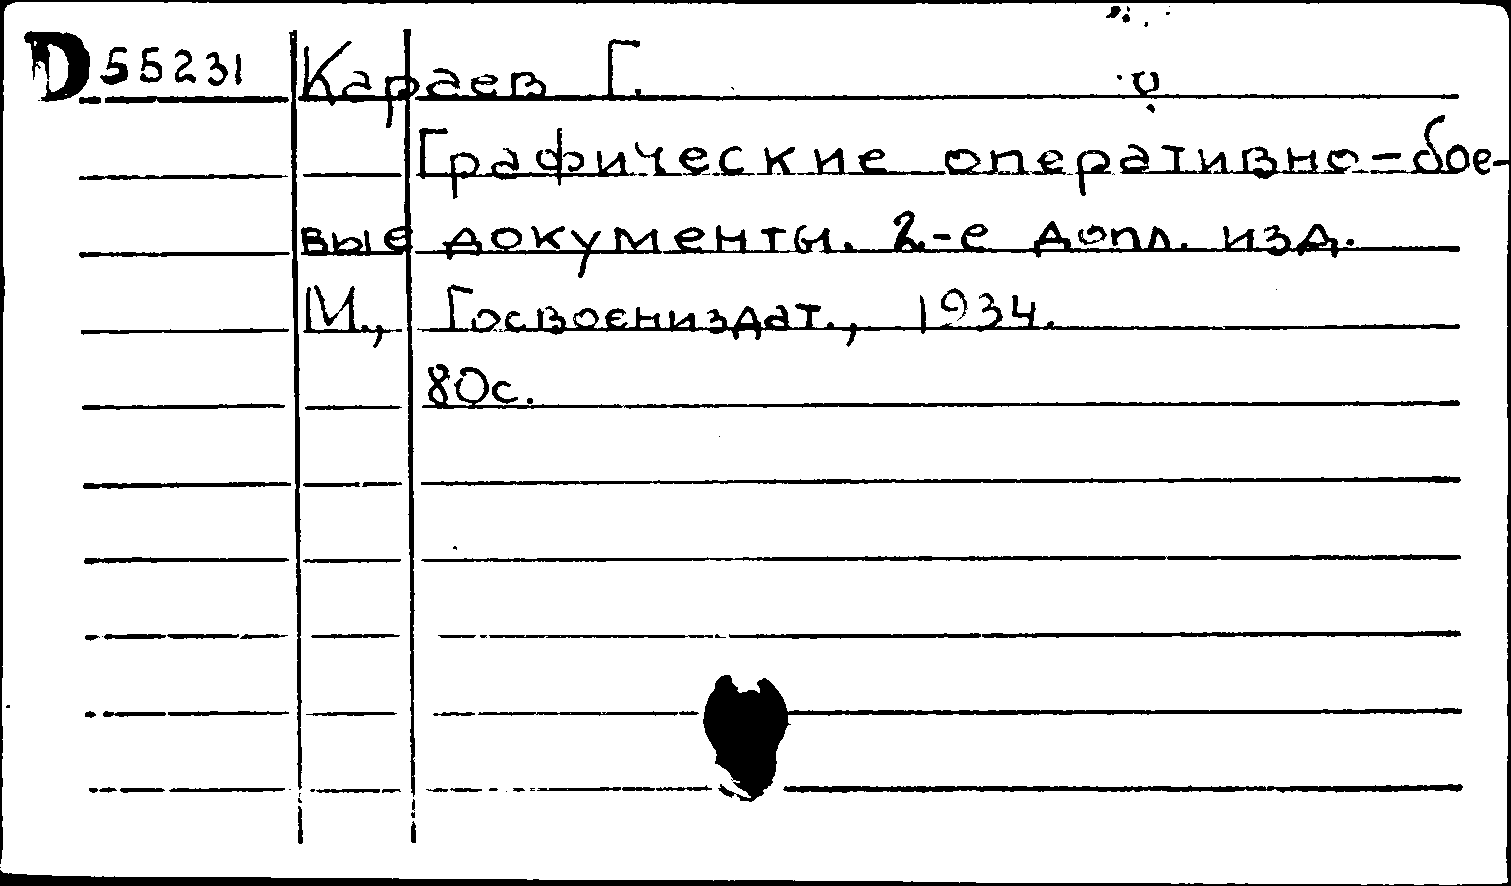 D 55231 Караев Г.
Графические оперативно-бое-
вые документы. 2-е допл. изд.
М., Госвоениздат., 1934.
80с.